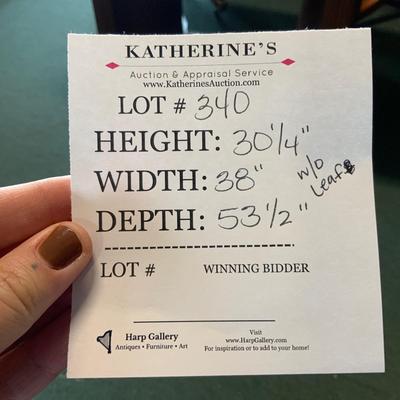 KATHERINE'S
Auction & Appraisal Service
www.KatherinesAuction.com
LOT # 340
HEIGHT: 30 1/4"
WIDTH: 38"
w/o
Leafs
DEPTH: 53 1/2"
LOT # WINNING BIDDER
Harp Gallery
Antiques • Furniture • Art
Visit
www.HarpGallery.com
For inspiration or to add to your home!